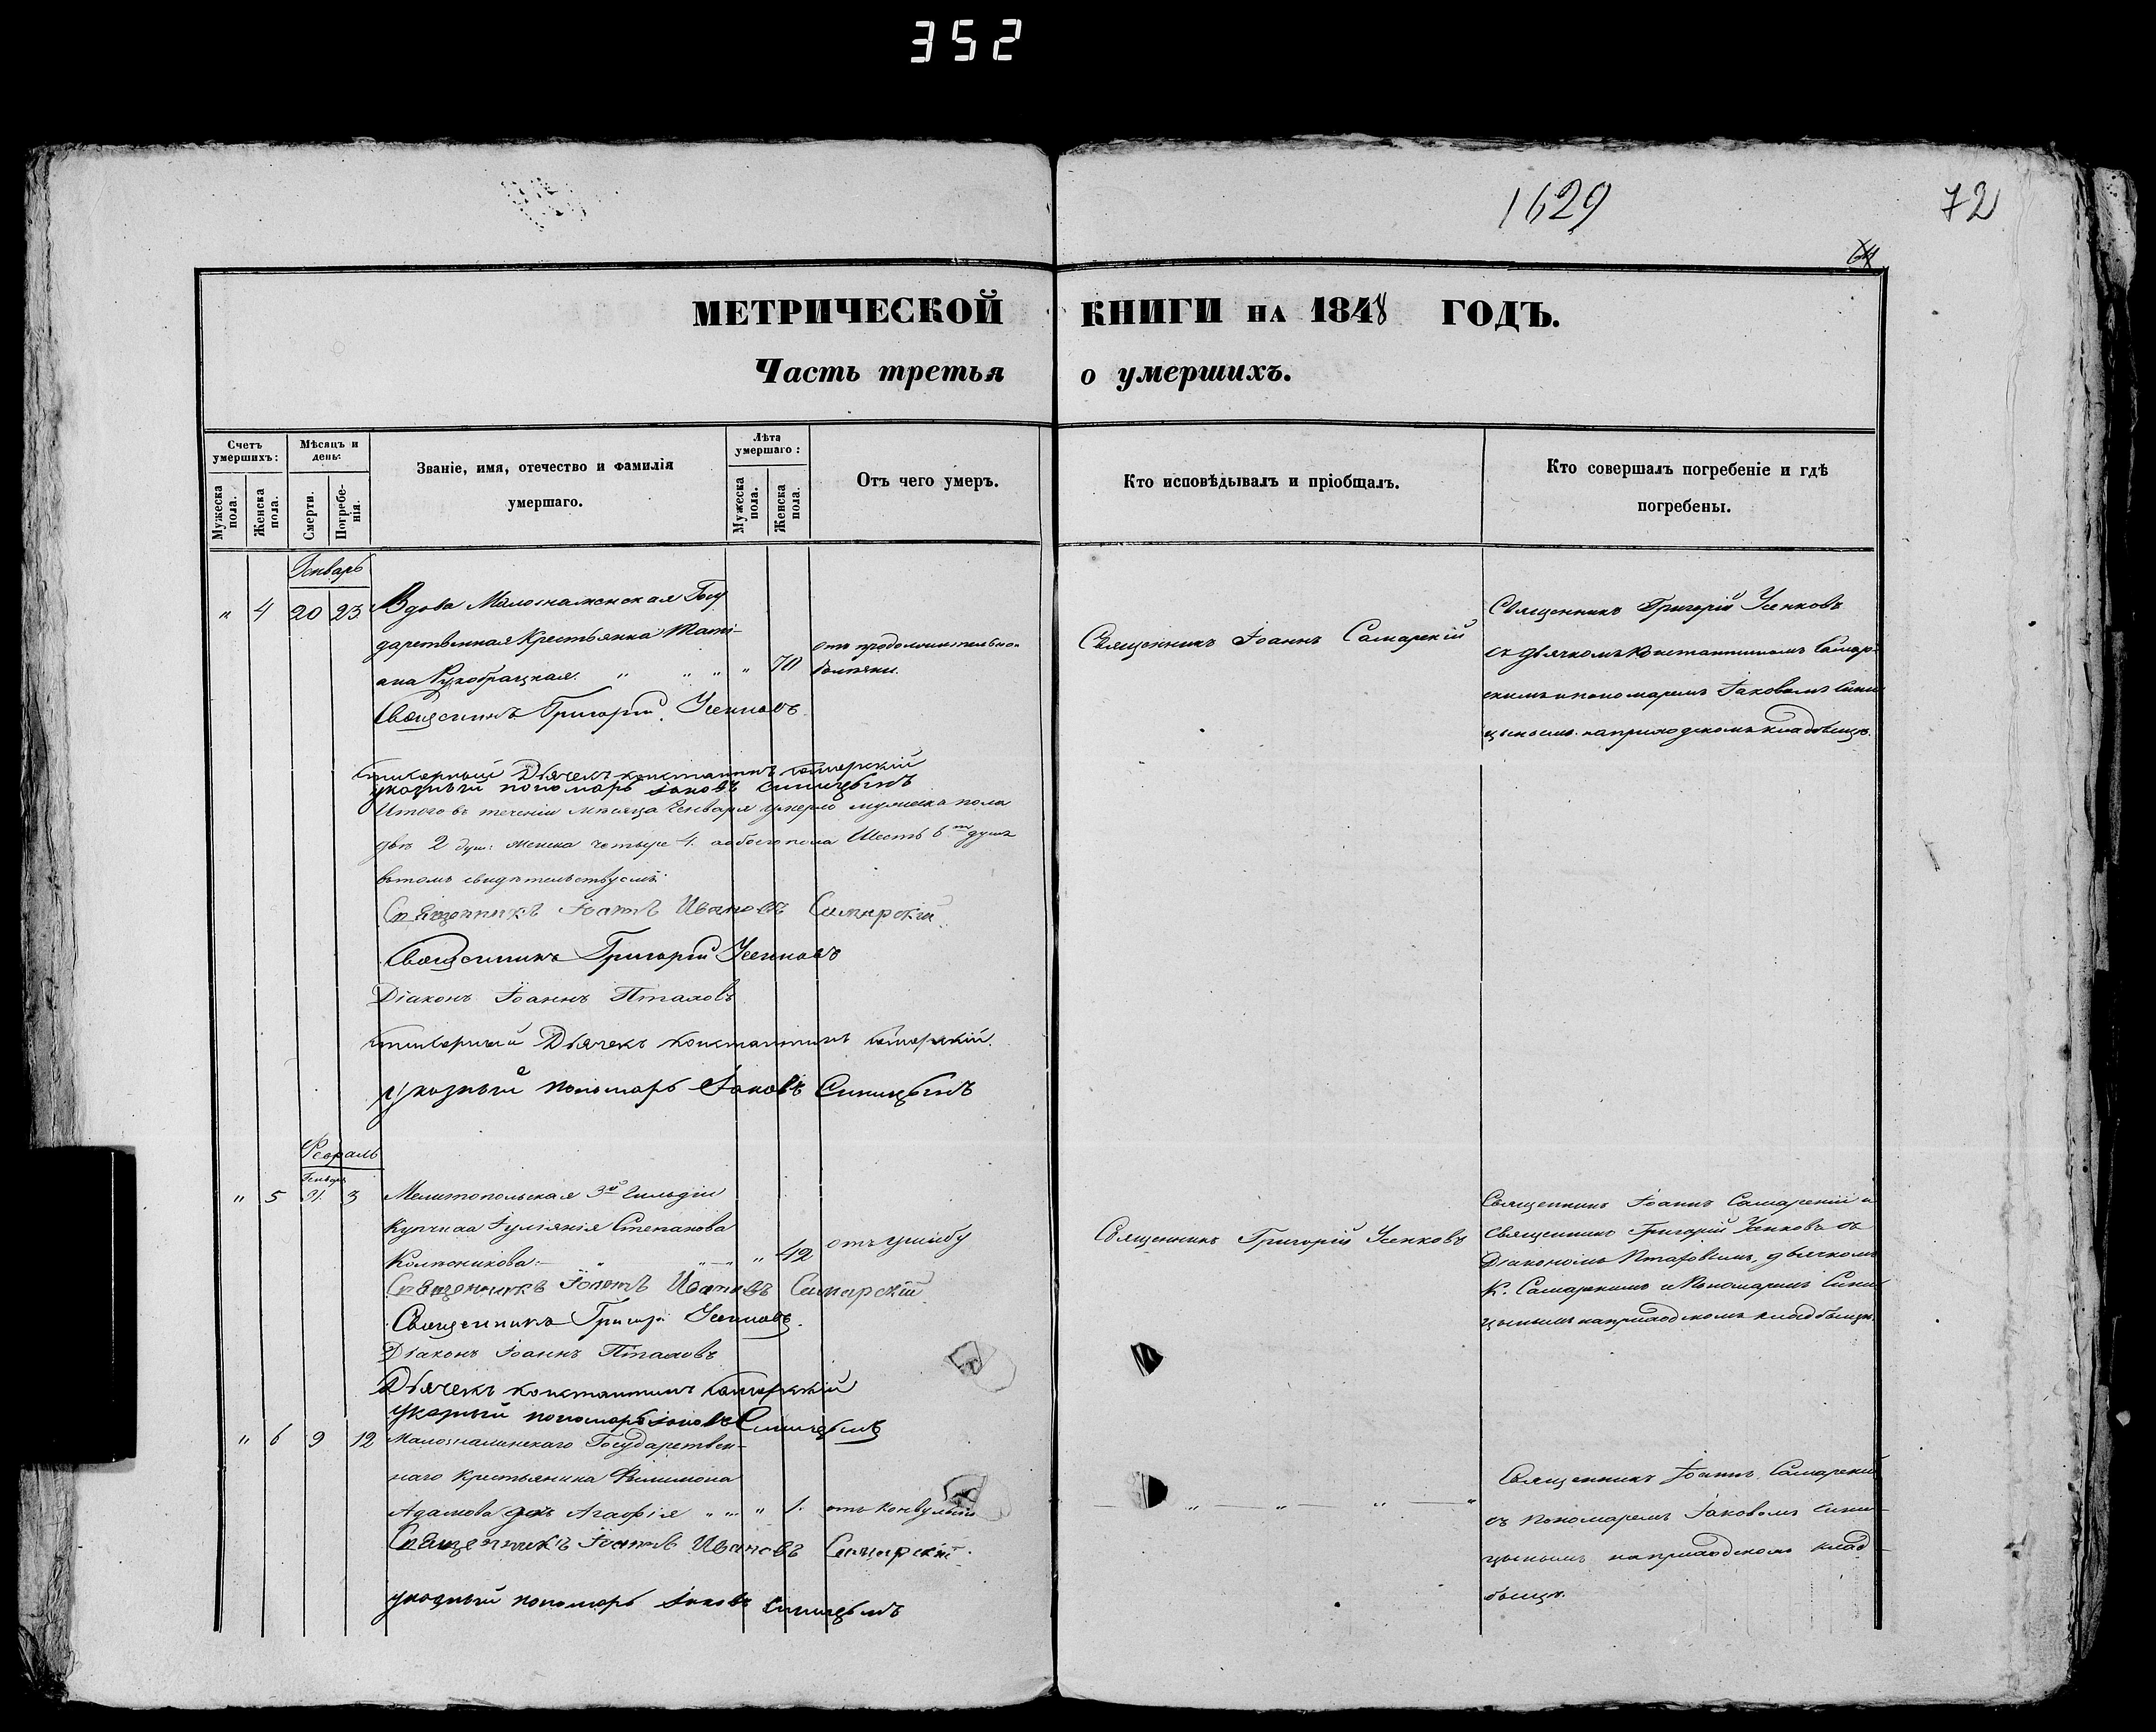 352
1629
72
64
МЕТРИЧЕСКОЙ КНИГИ НА 1848 ГОДЪ.
Часть третья о умершихъ.
Счетъ умершихъ:
Мѣсяцъ и день:
Званіе, имя, отечество и фамилія умершаго.
Лѣта умершаго:
Отъ чего умеръ.
Кто исповѣдывалъ и пріобщалъ.
Кто совершалъ погребеніе и гдѣ погребены.
Мужеска пола.
Женска пола.
Смерти.
Погребенія.
Мужеска пола.
Женска пола.
Генварь
" 4 20 23
Вдова Малознаменская Госу
дарственная Крестьянка Тати-
ана " " " " 70
отъ продолжительной
болѣзни.
Священникъ Іоаннъ Самарскій
Священникъ Григорій Усенковъ
съ дьячкомъ Константиномъ Самар-
скимъ и пономаремъ Іаковомъ Сини
цынымъ на приходскомъ кладбищѣ.
Священникъ Григорій Усенковъ
Стихарный Дьячекъ Константинъ Самарскій
указный пономарь Іаковъ Синицынъ
Итого въ теченіи мѣсяца Генваря умерло мужеска пола
двѣ 2 душ: женска четыре 4. а обоего пола Шесть 6 душъ
въ томъ свидѣтельствуемъ:
Священникъ Іоаннъ Ивановъ Самарскій
Священникъ Григорій Усенковъ
Діаконъ Іоаннъ Птаховъ
стихарный Дьячекъ Константинъ Самарскій.
указный пономарь Іаковъ Синицынъ
Февраль
Генваря
" 5 31. 3
Мелитопольская 3й Гильдіи
Купчиха Іуліанія Степанова
Колесникова:— " " 42
отъ ушибу
Священникъ Григорій Усенковъ
Священникъ Іоаннъ Самарскій и
Священникъ Григорій Усенковъ съ
Діакономъ Птаховымъ, дьячкомъ
К. Самарскимъ и Пономаремъ Сини
цынымъ на приходскомъ кладбищѣ.
Священникъ Іоаннъ Ивановъ Самарскій
Священникъ Григорій Усенковъ.
Діаконъ Іоаннъ Птаховъ
Дьячекъ Константинъ Самарскій
Указный пономарь Іаковъ Синицынъ
" 6 9 12
Малознаменскаго Государствен-
наго Крестьянина Филимона
Адамова дочь Агафія " " " 1.
отъ конвульсіи
" " " "
Священникъ Іоаннъ Самарскій
съ Пономаремъ Іаковомъ Сини-
цынымъ на приходскомъ клад-
бищѣ.
Священникъ Іоаннъ Ивановъ Самарскій
указный пономарь Іаковъ Синицынъ